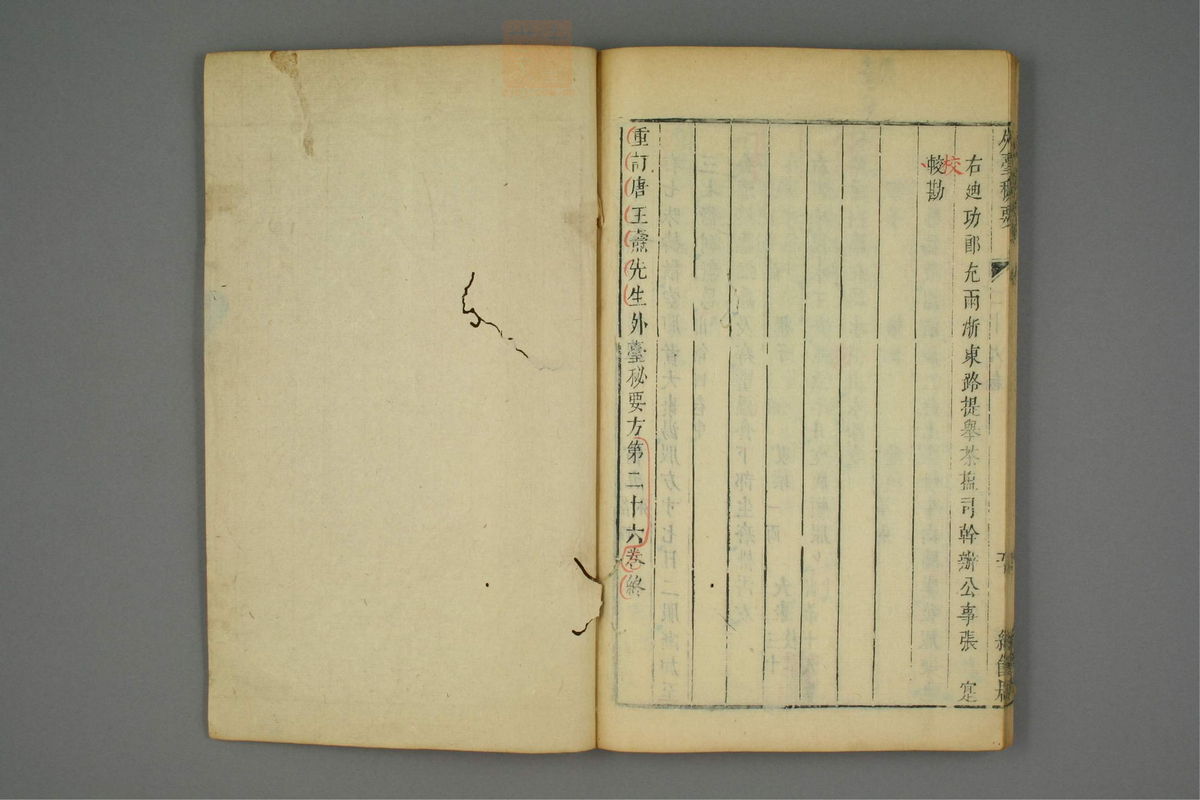 右迪功郎充兩浙東路提舉茶塩司幹辦公事張 寔
較勘
校
重訂唐王燾先生外臺秘要方第二十六卷終
外臺秘要